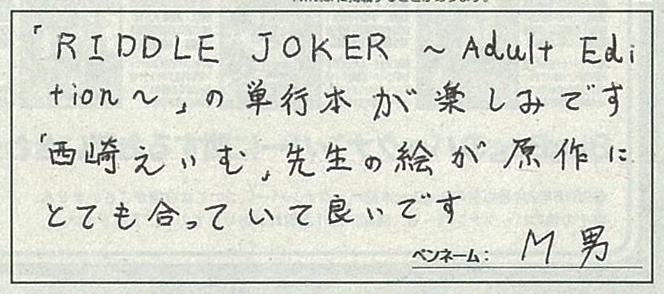 「RIDDLE JOKER ～Adult Edi
tion～」の単行本が楽しみです
「西崎えいむ」先生の絵が原作に
とても合っていて良いです
ペンネーム： M男